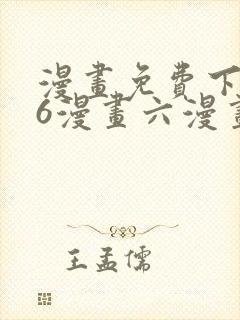 漫畫免費下
6漫畫六漫畫
王孟儒